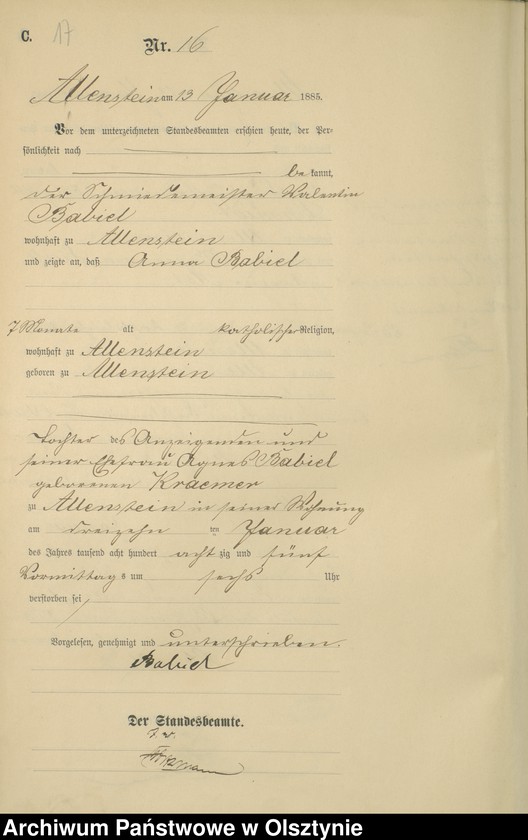 C. 17
Nr. 16
Allenstein am 13 Januar 1885.
Vor dem unterzeichneten Standesbeamten erschien heute, der Per-
sönlichkeit nach
be kannt,
der Schmiedemeister Valentin
Babiel
wohnhaft zu Allenstein
und zeigte an, daß Anna Babiel
7 Monate alt katholischer Religion,
wohnhaft zu Allenstein
geboren zu Allenstein
Tochter des Anzeigenden und
seiner Ehefrau Agnes Babiel
geborenen Kraemer
zu Allenstein in seiner Wohnung
am dreizehn ten Januar
des Jahres tausend acht hundert acht zig und fünf
Vormittag s um sechs Uhr
verstorben sei
Vorgelesen, genehmigt und unterschrieben.
Babiel
Der Standesbeamte.
Archiwum Państwowe w Olsztynie